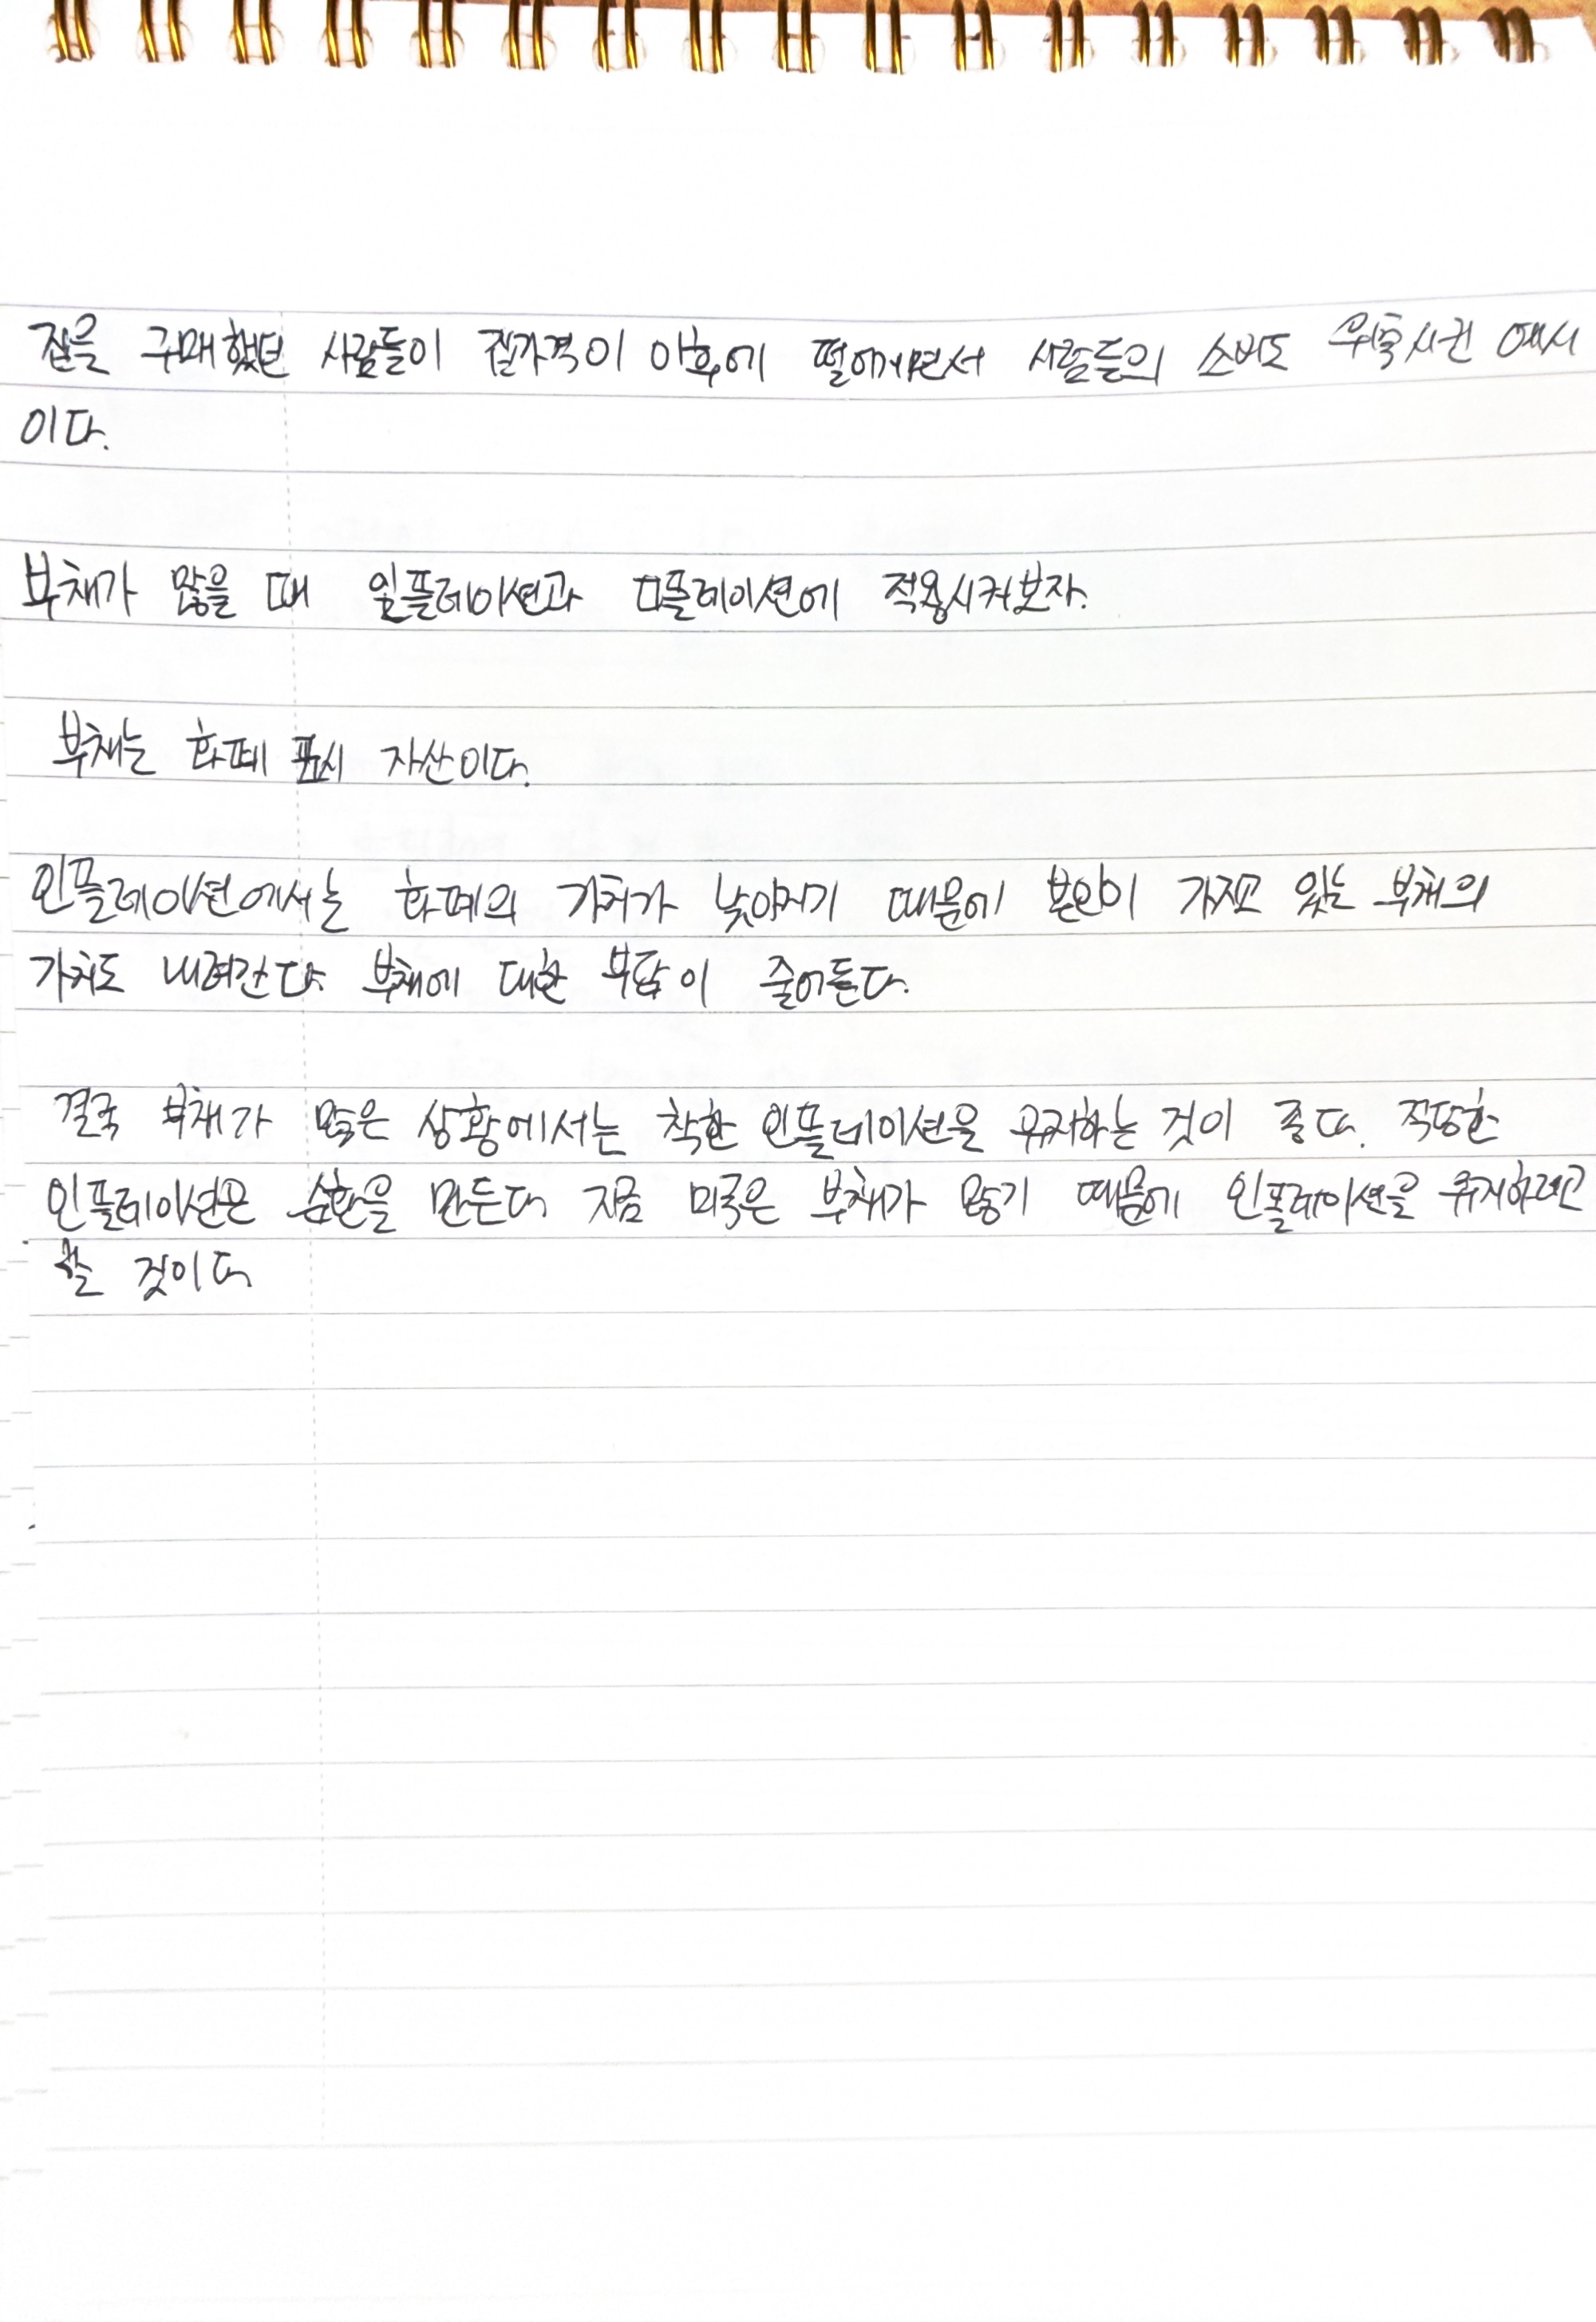 집을 구매했던 사람들이 집가격이 이후에 떨어지면서 사람들의 소비도 위축시킨 예시
이다.
부채가 많을 때 인플레이션과 디플레이션에 적용시켜보자.
부채는 화폐 표시 자산이다.
인플레이션에서는 화폐의 가치가 낮아지기 때문에 본인이 가지고 있는 부채의
가치도 내려간다. 부채에 대한 부담이 줄어든다.
결국 부채가 많은 상황에서는 착한 인플레이션을 유지하는 것이 좋다. 적당한
인플레이션은 순환을 만든다 지금 미국은 부채가 많기 때문에 인플레이션을 유지하려고
할 것이다